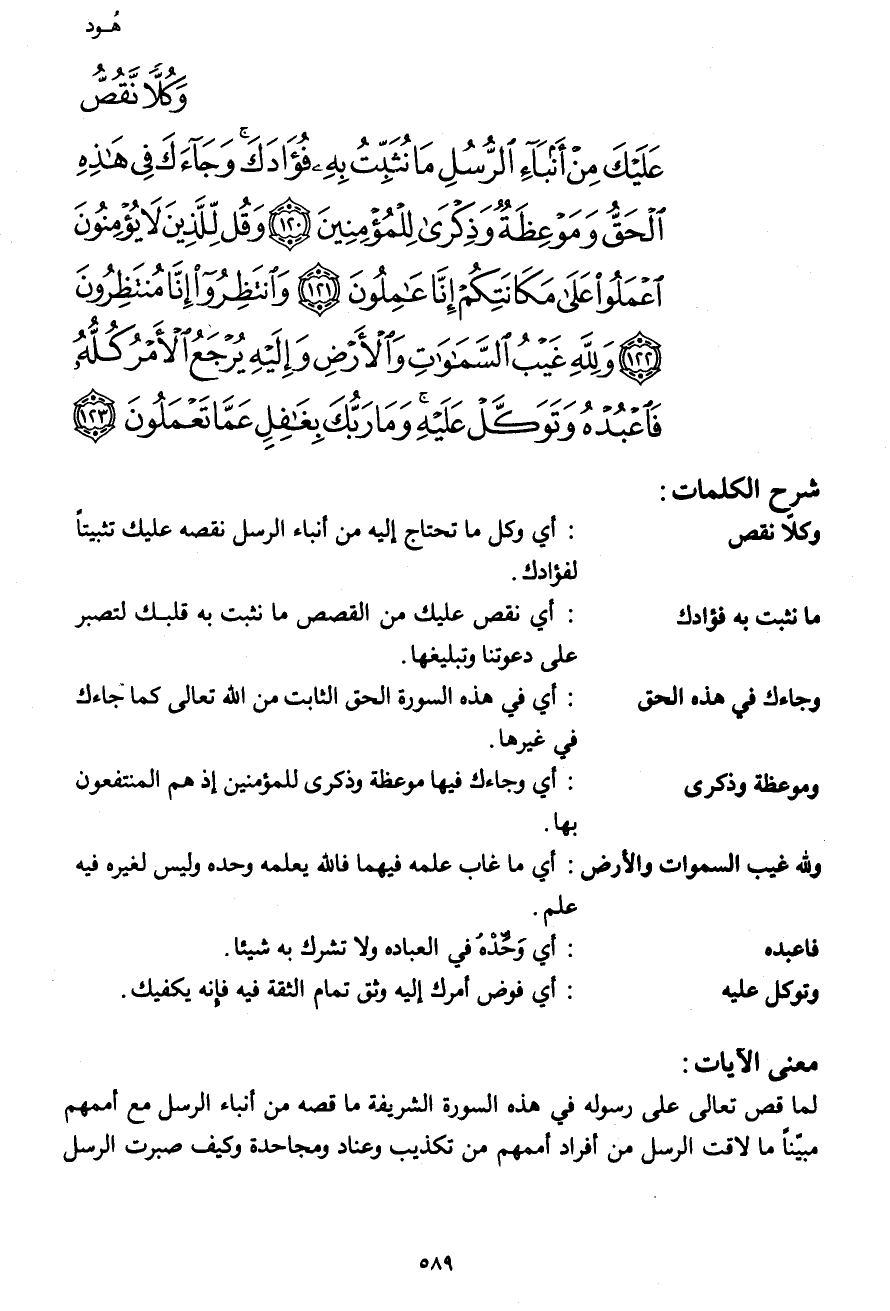 هُود
وَكُلًّا نَّقُصُّ
عَلَيْكَ مِنْ أَنۢبَآءِ ٱلرُّسُلِ مَا نُثَبِّتُ بِهِۦ فُؤَادَكَ ۚ وَجَآءَكَ فِى هَٰذِهِ
ٱلْحَقُّ وَمَوْعِظَةٌ وَذِكْرَىٰ لِلْمُؤْمِنِينَ ﴿١٢٠﴾ وَقُل لِّلَّذِينَ لَا يُؤْمِنُونَ
ٱعْمَلُوا۟ عَلَىٰ مَكَانَتِكُمْ إِنَّا عَٰمِلُونَ ﴿١٢١﴾ وَٱنتَظِرُوٓا۟ إِنَّا مُنتَظِرُونَ
﴿١٢٢﴾ وَلِلَّهِ غَيْبُ ٱلسَّمَٰوَٰتِ وَٱلْأَرْضِ وَإِلَيْهِ يُرْجَعُ ٱلْأَمْرُ كُلُّهُۥ
فَٱعْبُدْهُ وَتَوَكَّلْ عَلَيْهِ ۚ وَمَا رَبُّكَ بِغَٰفِلٍ عَمَّا تَعْمَلُونَ ﴿١٢٣﴾
شرح الكلمات :
وكلًّا نقص : أي وكل ما تحتاج إليه من أنباء الرسل نقصه عليك تثبيتاً
لفؤادك .
ما نثبت به فؤادك : أي نقص عليك من القصص ما نثبت به قلبـك لتصبر
على دعوتنا وتبليغها .
وجاءك في هذه الحق : أي في هذه السورة الحق الثابت من الله تعالى كما جاءك
في غيرها .
وموعظة وذكرى : أي وجاءك فيها موعظة وذكرى للمؤمنين إذ هم المنتفعون
بها .
ولله غيب السموات والأرض : أي ما غاب علمه فيهما فالله يعلمه وحده وليس لغيره فيه
علم .
فاعبده : أي وَحِّدْهُ في العباده ولا تشرك به شيئا .
وتوكل عليه : أي فوض أمرك إليه وثق تمام الثقة فيه فإنه يكفيك .
معنى الآيات :
لما قص تعالى على رسوله في هذه السورة الشريفة ما قصه من أنباء الرسل مع أممهم
مبيّناً ما لاقت الرسل من أفراد أممهم من تكذيب وعناد ومجاحدة وكيف صبرت الرسل
٥٨٩